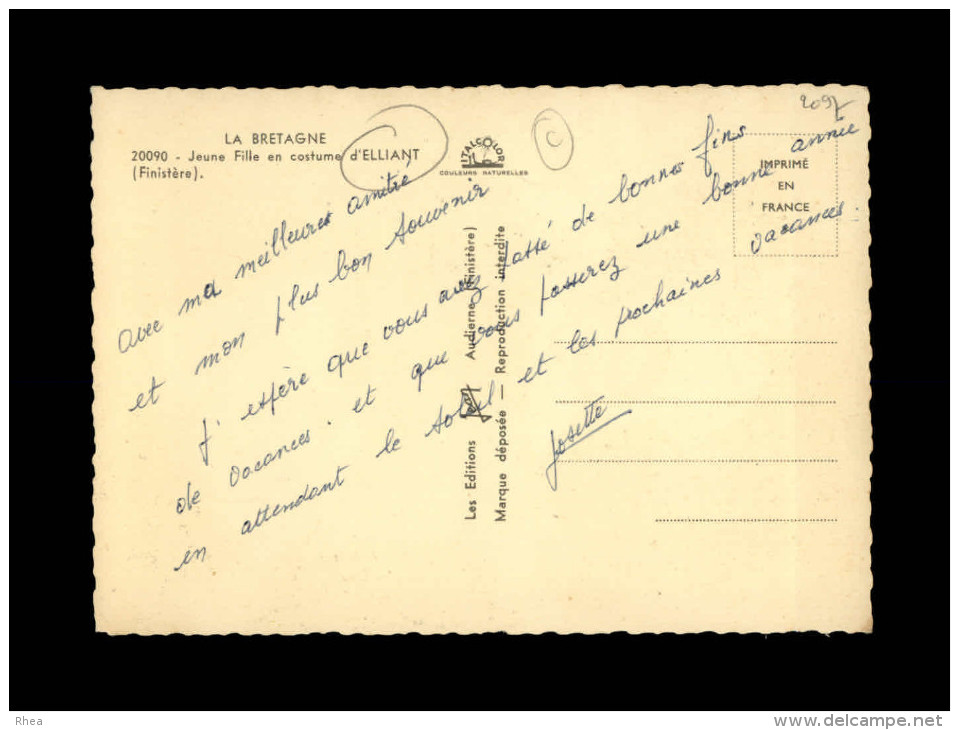 LA BRETAGNE
20090 - Jeune Fille en costume d'ELLIANT
(Finistère).
ITALCOLOR
COULEURS NATURELLES
C
2097
IMPRIMÉ
EN
FRANCE
avec ma meilleures amitié
et mon plus bon souvenir
J'espère que vous avez passé de bonnes fins
de vacances. et que vous passerez une bonne année
en attendant le soleil et les prochaines vacances.
Josette
Les Editions Jean Audierne (Finistère)
Marque déposée — Reproduction interdite
Rhea
www.delcampe.net